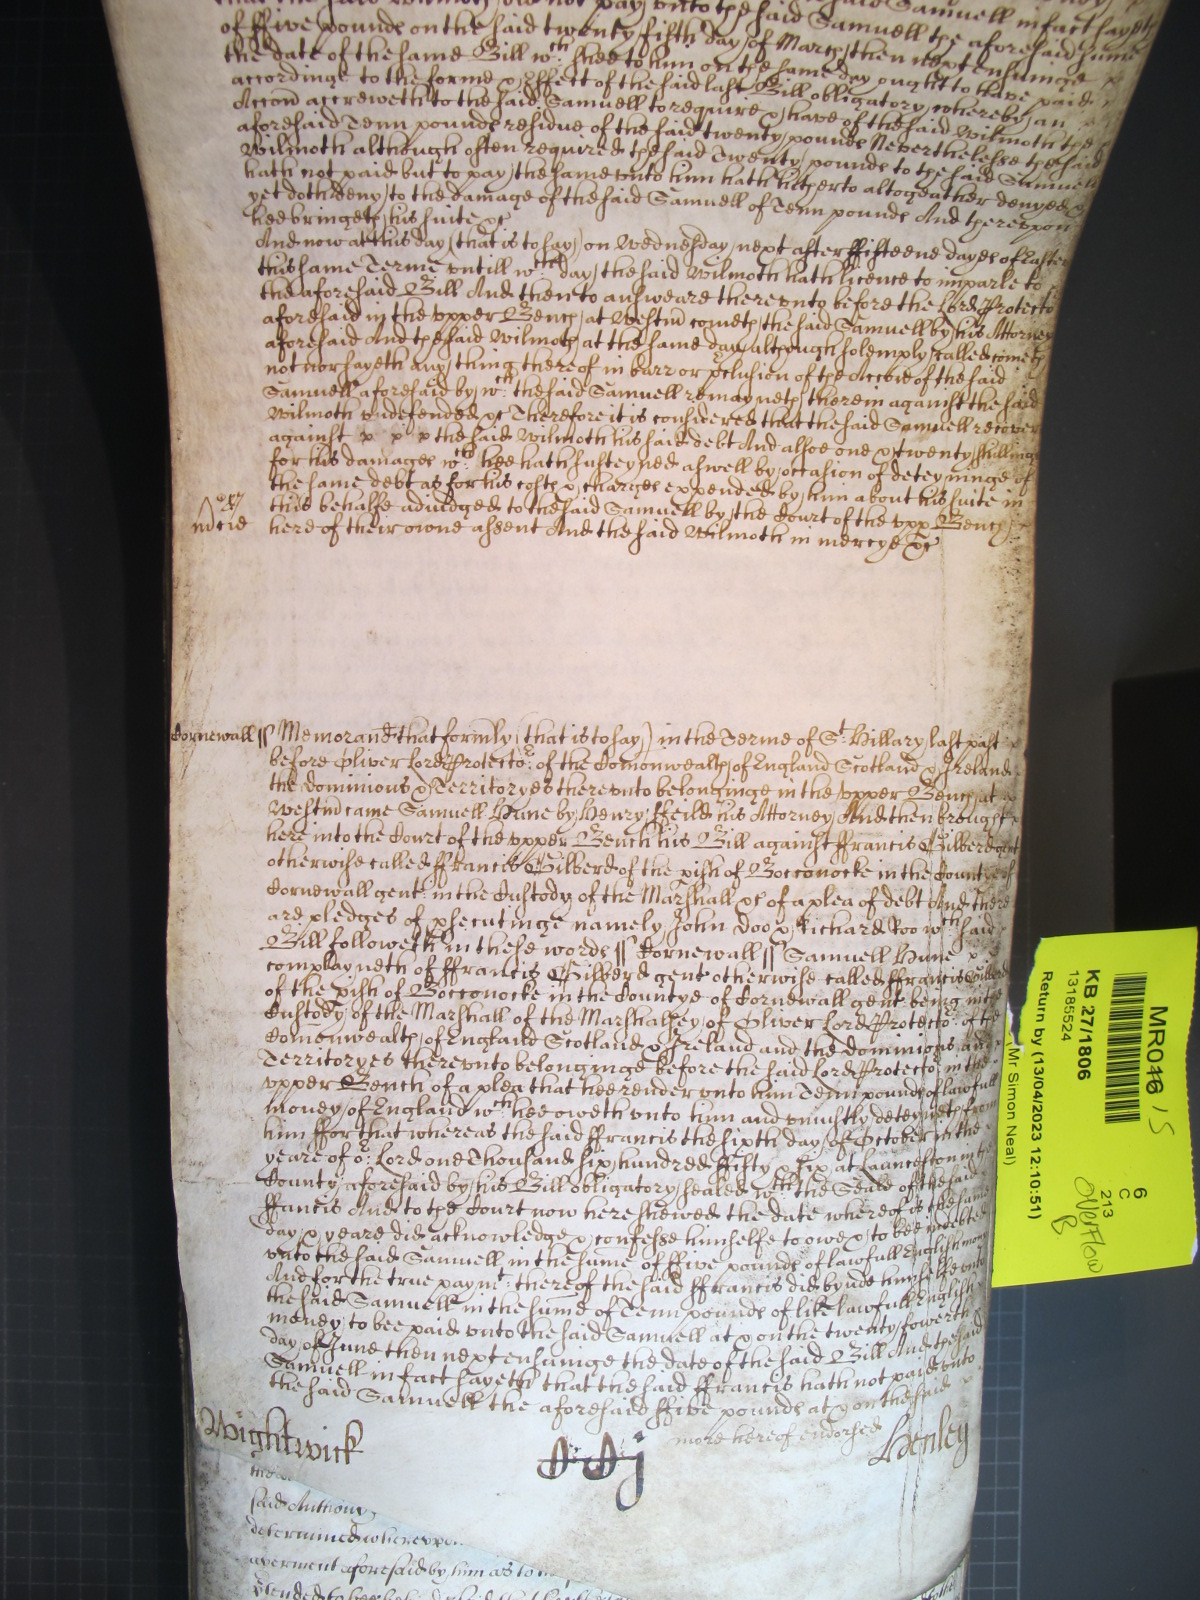 that the said Wilmoth did not pay unto the said Samuell in fact sayeth
of ffive pounds on the said twenty fifth day of March then next ensuinge
the date of the same Bill wch: shee to him on the same day ought to have paid
accordinge to the forme & effect of the said last Bill obligatory whereby an
Accon accreweth to the said Samuell to require & have of the said Wilmoth the
aforesaid Tenn pounds residue of the said twenty pounds Neverthelesse the said
Wilmoth although often required the said Twenty pounds to the said Samuell
hath not paid but to pay the same unto him hath hitherto altogeather denyed &
yet doth deny to the damage of the said Samuell of Tenn pounds And thereupon
hee bringeth his suite &c
And now at this day (that is to say) on Wednesday next after ffifteene dayes of Easter
this same Terme untill wch day the said Wilmoth hath licence to imparle to
the aforesaid Bill And then to answeare thereunto before the Lord Protector
aforesaid in the upper Bench at Westm cometh the said Samuell by his Attorney
aforesaid And the said Wilmoth at the same day although solemply called cometh
not nor sayeth any thing thereof in barr or pclusion of the Accon of the said
Samuell aforesaid by wch: the said Samuell remayneth therein against the said
Wilmoth undefended &c Therefore it is considered that the said Samuell recover
against x x x the said Wilmoth his said debt And alsoe one & twenty shillings
for his damages wch: hee hath susteyned aswell by occasion of deteyninge of
the same debt as for his costs & charges expended by him about his suite in
this behalfe adiudged to the said Samuell by the Court of the upp Bench
here of their owne assent And the said Wilmoth in mercye &c
mcie
Cornewall ss Memorand that formly (that is to say) in the Terme of St: Hillary last past
before Oliver Lord Protector: of the Comonwealth of England Scotland & Ireland
the dominions & Territoryes thereunto belonginge in the upper Bench at
Westm came Samuell Hune by Henry ffeild his Attorney And then brought
here into the Court of the upper Bench his Bill against ffrancis Gilberd gent
otherwise called ffrancis Gilberd of the pish of Bocconocke in the Countye of
Cornewall gent: in the Custody of the Marshall &c of a plea of debt And there
are pledges of psecutinge namely John Doo & Richard Roo wch said
Bill followeth in these words ss Cornewall ss Samuell Hune x
complayneth of ffrancis Gilberd gent otherwise called ffrancis Gilberd
of the pish of Bocconocke in the Countye of Cornewall gent: being in the
Custody of the Marshall of the Marshalsey of Oliver Lord Protector: of the
Comenwealth of England Scotland & Ireland and the dominions and
Territoryes thereunto belonginge before the said Lord Protector in the
upper Bench of a plea that hee render unto him Tenn pounds of lawfull
money of England wch hee oweth unto him and uniustly deteyneth from
him ffor that whereas the said ffrancis the sixth day of October in the
yeare of or: Lord one Thousand six hundred ffifty & six at Launceston in the
County aforesaid by his Bill obligatory sealed wth the Seale of the said
ffrancis And to the Court now here shewed the date whereof is the same
day & yeare did acknowledge & confesse himselfe to owe & to bee indebted
unto the said Samuell in the sume of ffive pounds of lawfull English mony
And for the true paymt: thereof the said ffrancis did bynde himselfe unto
the said Samuell in the sume of Tenn pounds of like lawfull English
money to bee paid unto the said Samuell at & on the twenty fowerth
day of June then next ensuinge the date of the said Bill And the said
Samuell in fact sayeth that the said ffrancis hath not paid unto
the said Samuell the aforesaid ffive pounds at & on the said
more hereof endorsed
Wightwick
Henley
said Anthony
determined whereupon
averment aforesaid by him as to
MR046 15
KB 27/1806
13185524
Return by (13/04/2023 12:10:51)
(Mr Simon Neal)
6
C
213
overflow
B